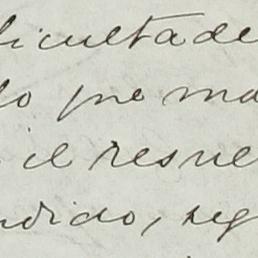 ficultade
do que ma
il resue
ndido, seg